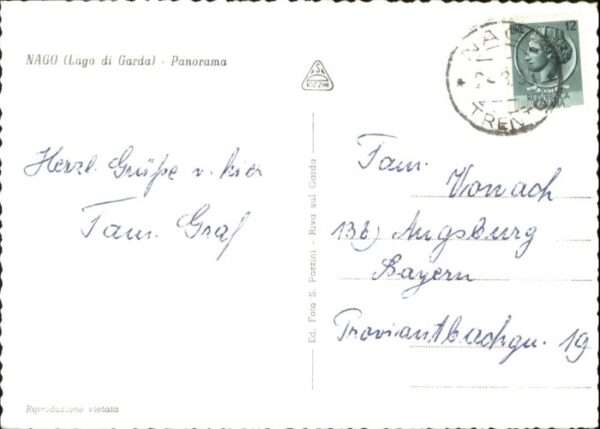 NAGO (Lago di Garda) - Panorama
Herzl. Grüße v. hier
Fam. Graf
Ed. Foto S. Pattini - Riva sul Garda
Riproduzione vietata
12
NAGO
TRENTO
Fam.
Vonach
13b) Augsburg
Bayern
Proviantbachgu. 19